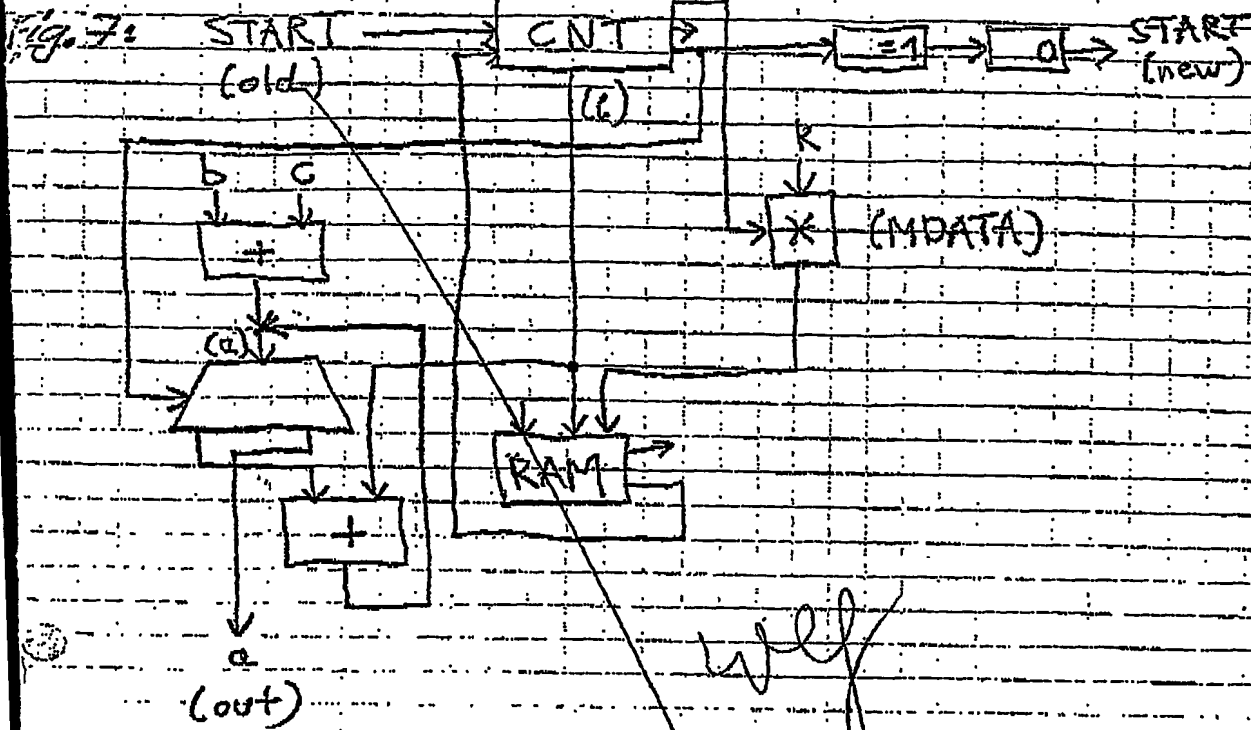 Fig. 7:
START
(old)
CNT
=1
0
START
(new)
(i)
K
b
c
+
×
(MDATA)
(a)
RAM
+
a
(out)